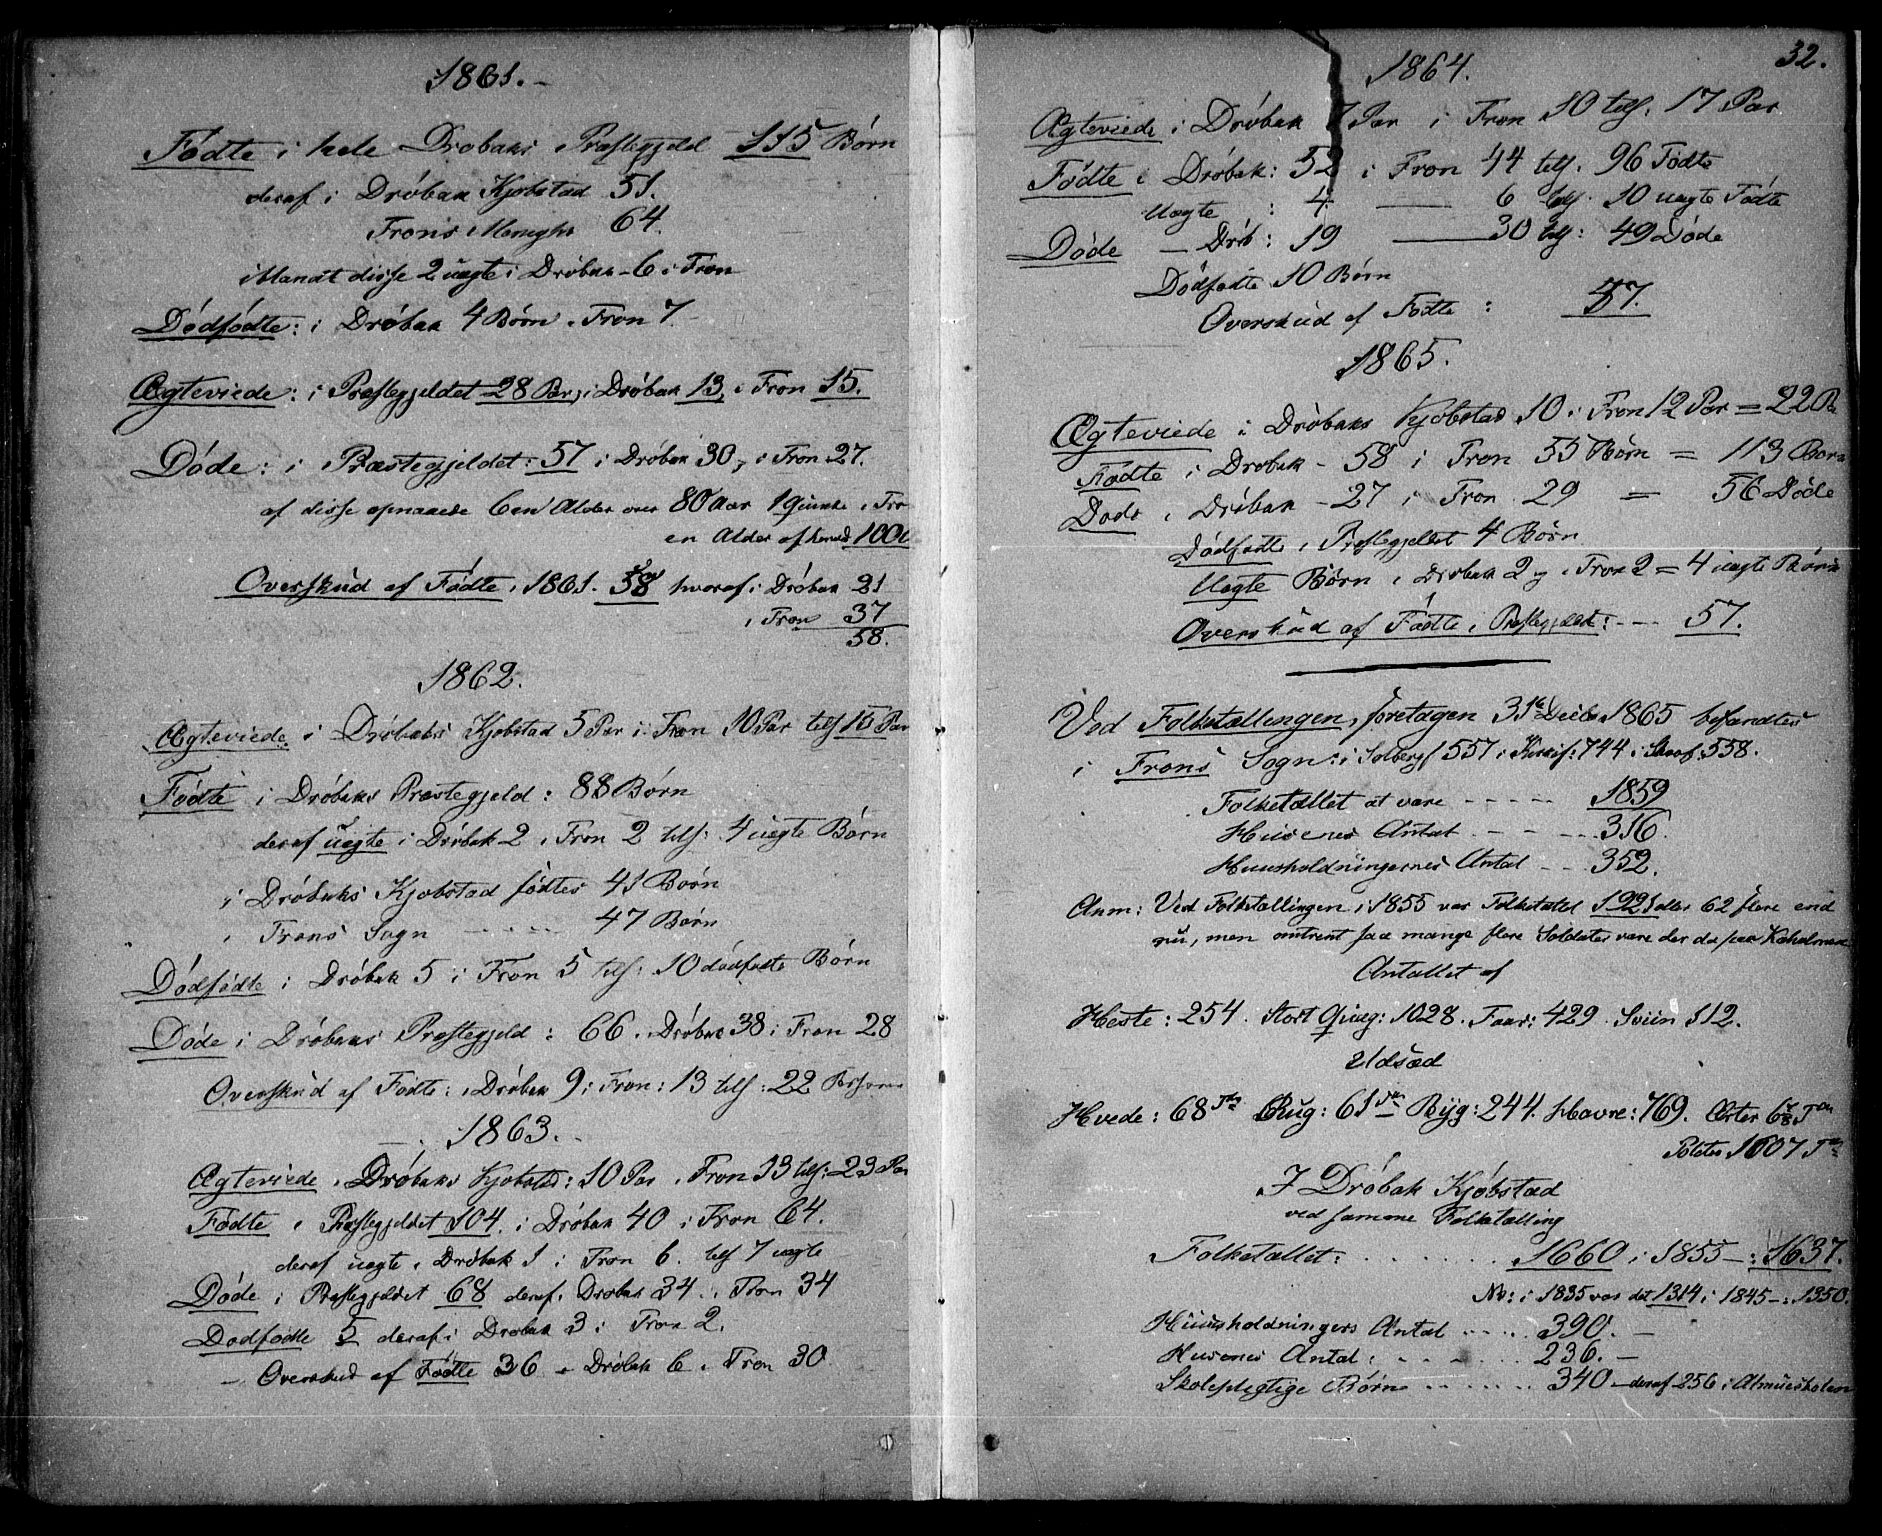 1861.-
Födte i hele Dröbaks Præstegjeld 115 Børn
deraf i Dröbak Kjöbstad 51.
Frons Menigh: 64.
iblandt disse 2 uægte i Dröbak - 6 i Fron
Dödfödte: i Dröbak 4 Børn i Fron 7.
Ægteviede: i Præstegjeldet 28 Par, i Dröbak 13, i Fron 15.
Döde: i Præstegjeldet: 57 i Dröbak 30, i Fron 27.
af disse opnaaede 6 en Alder over 80 Aar 1 Qvinde i Fro
en Alder af henved 100
Overskud af Födte i 1861. 58 hvoraf i Dröbak 21
i Fron 37
58.
1862.
Ægteviede i Dröbaks Kjöbstad 5 Par i Fron 10 Par tils 15 Par
Födte i Dröbaks Præstegjeld: 88 Børn
deraf uægte i Dröbak 2 i Fron 2 tils: 4 uægte Børn
i Dröbaks Kjöbstad födtes 41 Børn
i Frons Sogn - - - - - 47 Børn
Dödfödte i Dröbak 5 i Fron 5 tils: 10 dödfödte Børn
Döde i Dröbaks Præstegjeld: 66. Dröbak 38 i Fron 28
Overskud af Födte: i Dröbak 9 i Fron: 13 tils: 22
1863.
Ægteviede i Dröbaks Kjöbstad: 10 Par i Fron 13 tils: 23 Par
Födte i Præstegjeldet 104. i Dröbak 40 i Fron 64.
deraf uægte i Dröbak 1 i Fron 6. tils 7 uægte
Döde i Præstegjeldet 68 deraf i Dröbak 34. i Fron 34
Dödfödte 5 deraf i Dröbak 3 i Fron 2.
- Overskud af Födte 36 - Dröbak 6 i Fron 30
32.
1864.
Ægteviede i Dröbak 7 Par i Fron 10 tils. 17 Par
Födte i Dröbak: 52 i Fron 44 tils. 96 Födte
Uægte : 4. — 6 tils. 10 uægte Födte
Döde — Dröb: 19 — 30 tils: 49 Döde
Dödfödte 10 Børn
Overskud af Födte : 37.
1865.
Ægteviede i Dröbaks Kjöbstad 10 i Fron 12 Par = 22 P
Födte i Dröbak - 58 i Fron 55 Børn = 113 Børn
Döde i Dröbak - 27 i Fron 29 = 56 Döde
Dödfödte i Præstegjeldet 4 Børn
Uægte Børn i Dröbak 2 og i Fron 2 = 4 uægte Børn
Overskud af Födte i Præstegjeldet: - - - 57.
Ved Folketællingen, foretagen 31te Decbr 1865 befandtes
i Frons Sogn: i Solbergf 557 i 744 i 558.
Folketallet at være - - - - - 1859
Husenes Antal - - - - 316.
Huusholdningernes Antal - - - 352.
Anm: Ved Folketællingen i 1855 var Folketallet 1921 eller 62 flere end
nu, men omtrent saa mange flere Soldater vare der da paa Kaholmen
Antallet af
Heste: 254. Stort Qvæg: 1028. Faar: 429. Sviin 112.
Udsæd
Hvede: 68 Tdr Rug: 61 Tdr Byg: 244. Havre: 769. Ærter Tdr
Poteter 1607 Tdr
I Dröbak Kjöbstad
ved samme Folketælling
Folketallet: . . . . . . . 1660 i 1855 - : 1637.
Nb: i 1835 var det 1314 i 1845 - : 1350.
Huusholdningers Antal . . . . . 390. -
Husenes Antal: . . . . . 236. -
Skolepligtige Børn . . . . . . . 340 - deraf 256 i Almueskolen